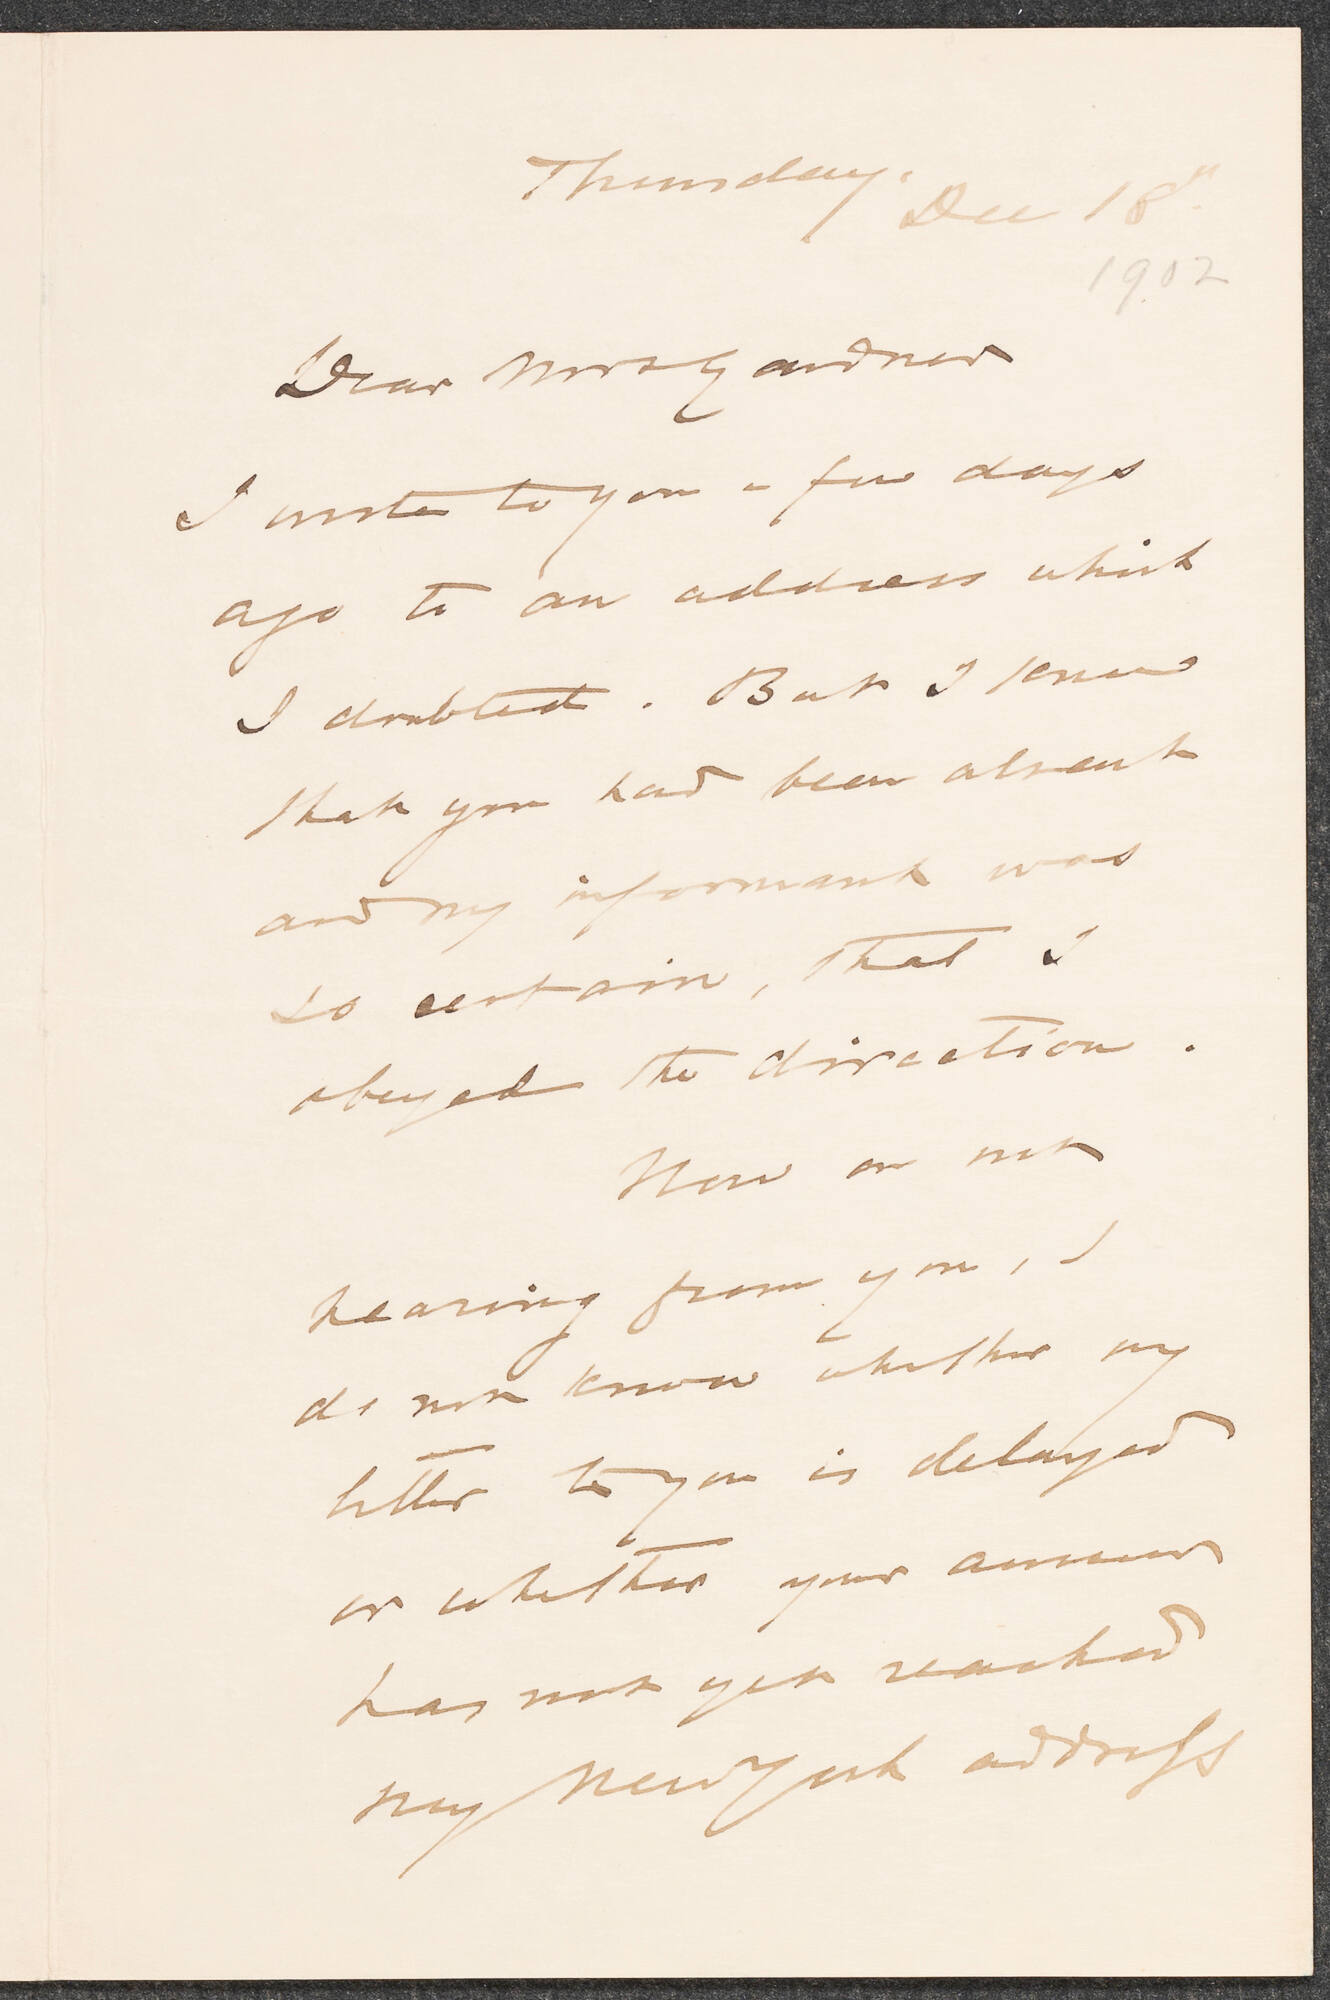 Thursday.
Dec 18th
1902
Dear Mrs Gardner
I wrote to you a few days
ago to an address which
I doubted. But I knew
that you had been absent
and my informant was
so certain, that I
obeyed the direction.
Now on not
hearing from you, I
do not know whether my
letter to you is delayed
or whether your answer
has not yet reached
my New York address